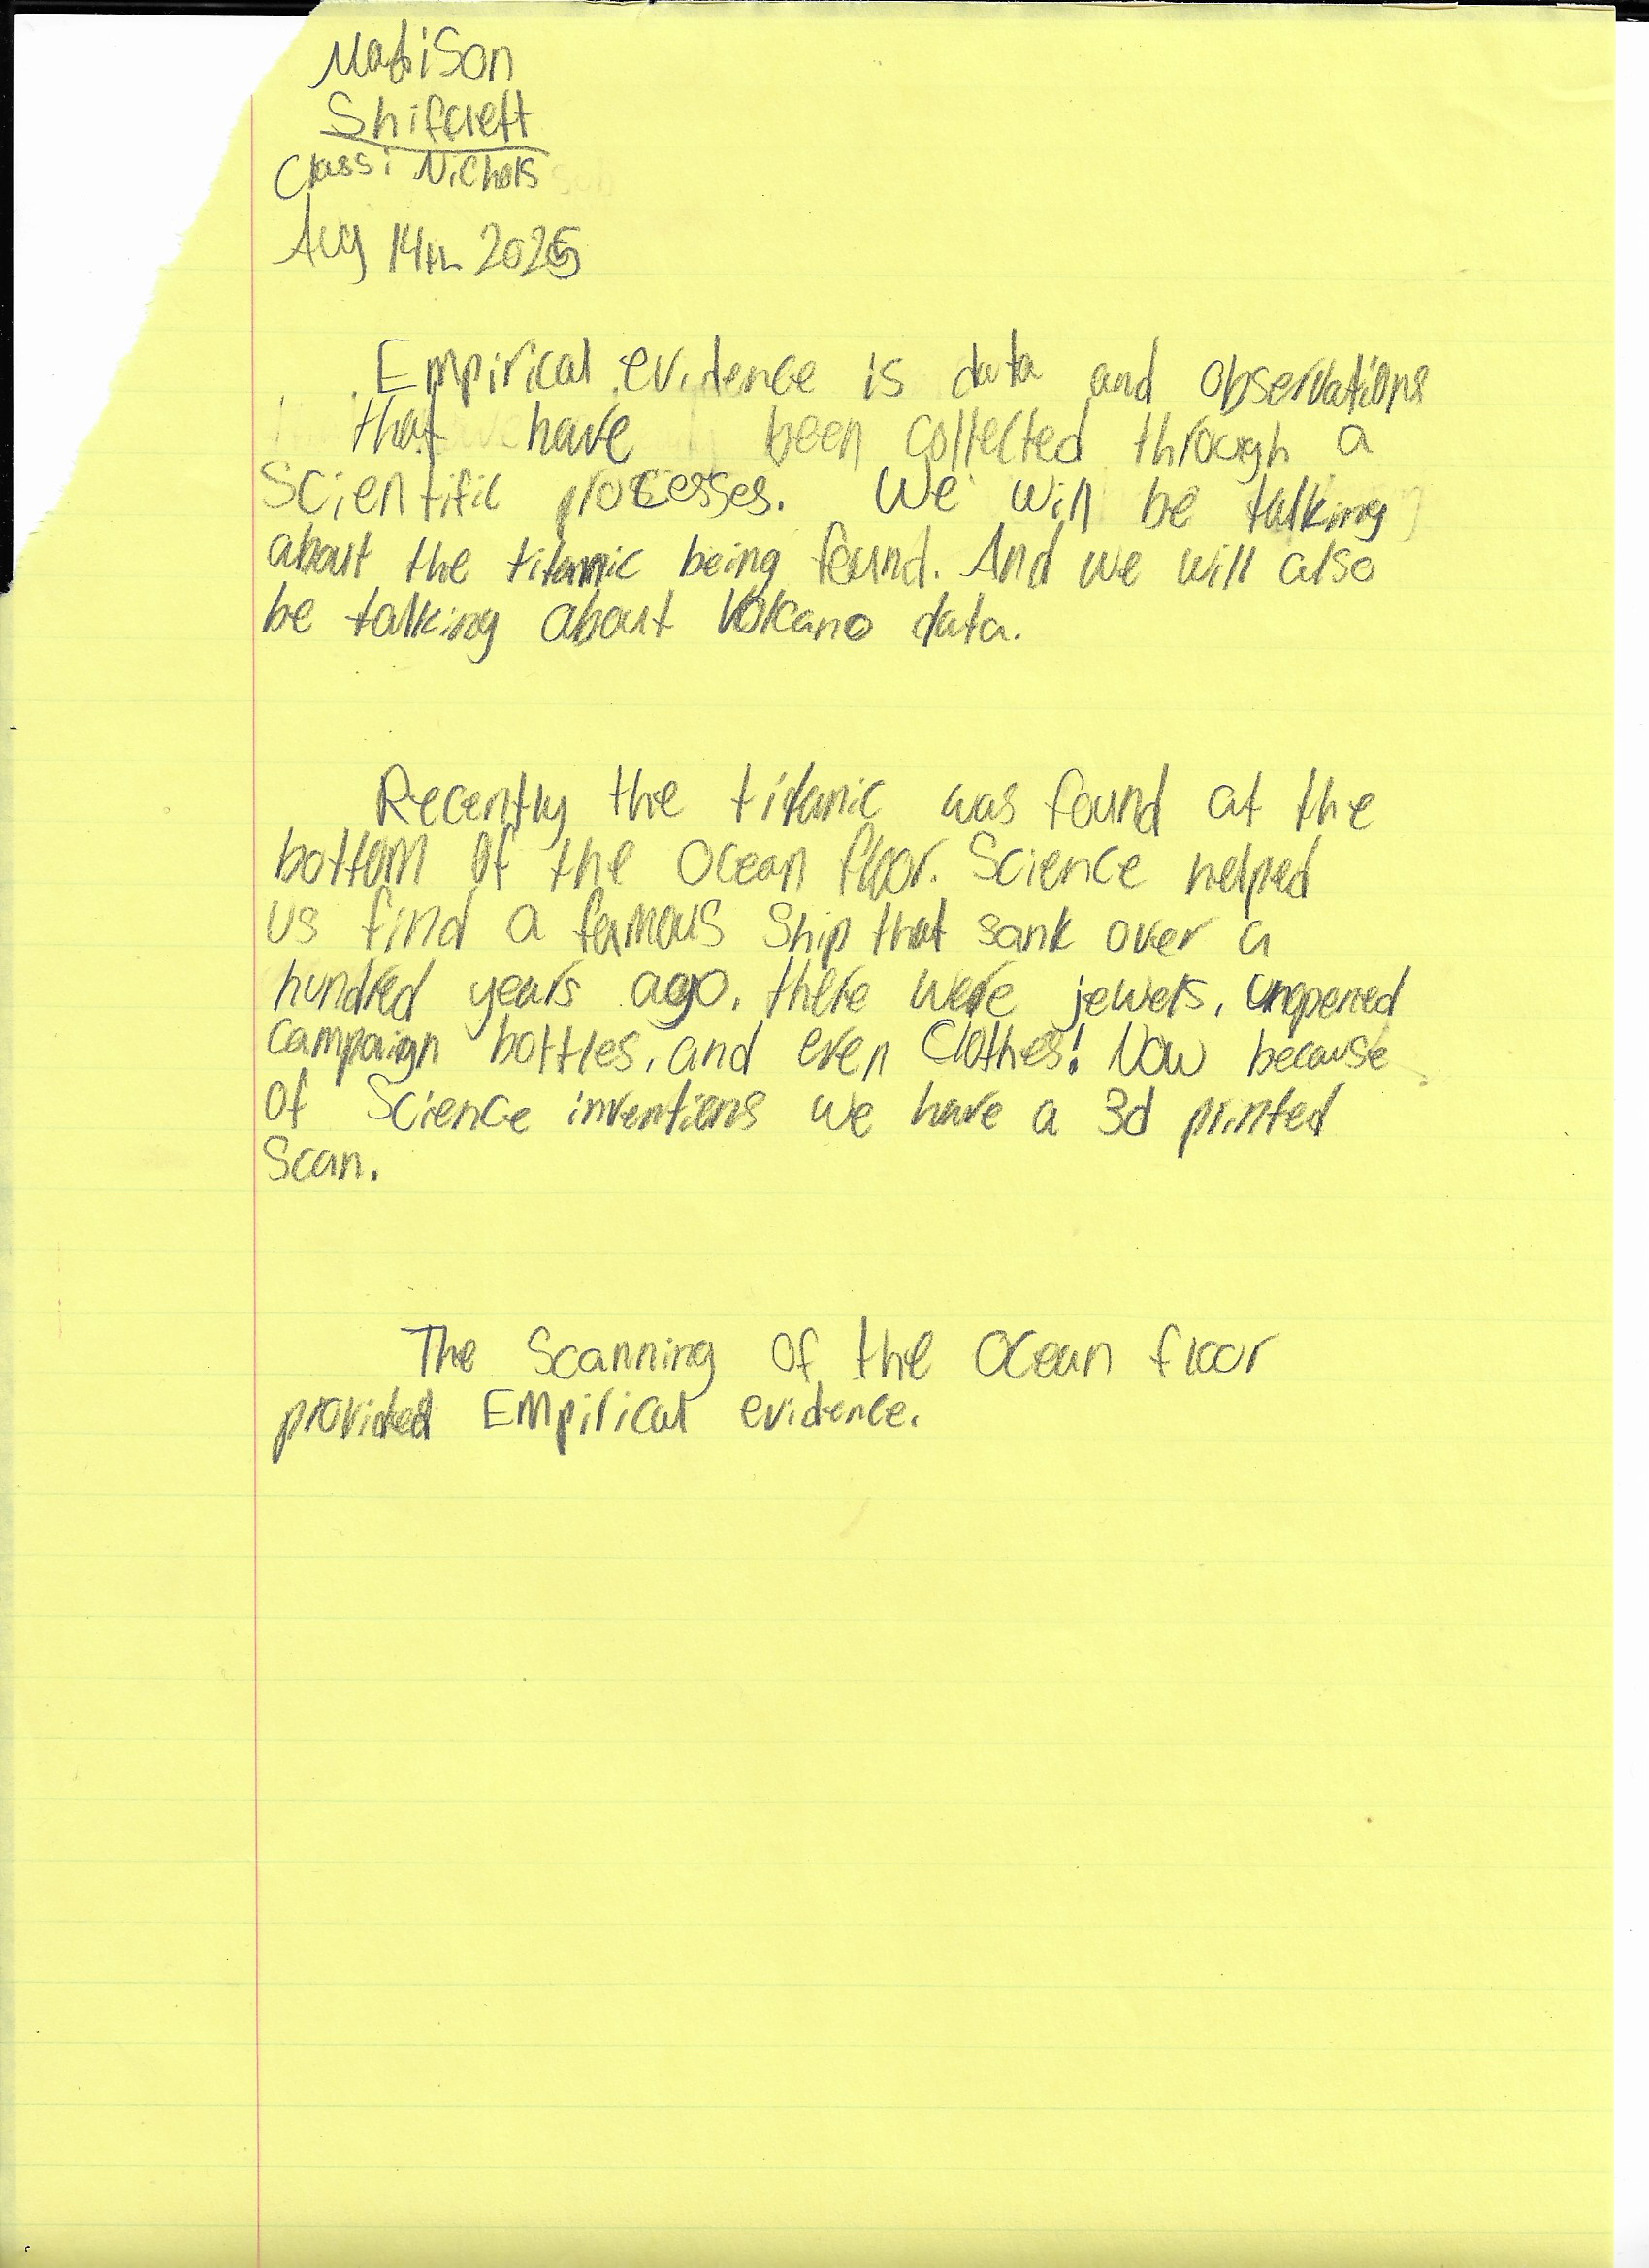 Madison
Shifclett
Class: Nichols
Aug 14th 2025
Empirical evidence is data and observations
that have been collected through a
Scientific processes. We will be talking
about the titanic being found. And we will also
be talking about Volcano data.
Recently the titanic was found at the
bottom of the Ocean floor. Science helped
us find a famous Ship that sank over a
hundred years ago. there were jewels, unopened
campaign bottles, and even Clothes! Now because
Of Science inventions we have a 3d printed
Scan.
The Scanning Of the Ocean floor
provided Empirical evidence.